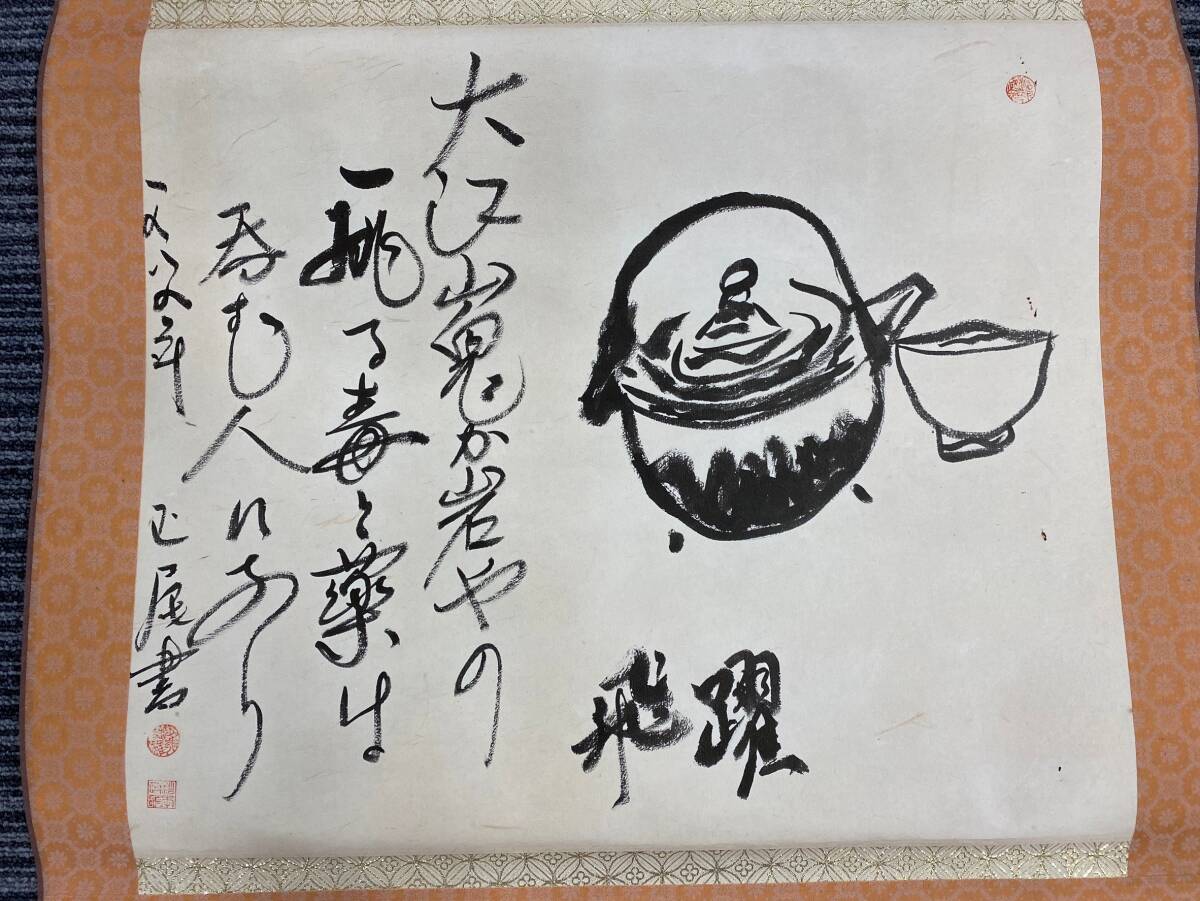 飛躍
大江山鬼か岩やの
一跳る毒と薬は
呑む人にあり
一九八九年
書